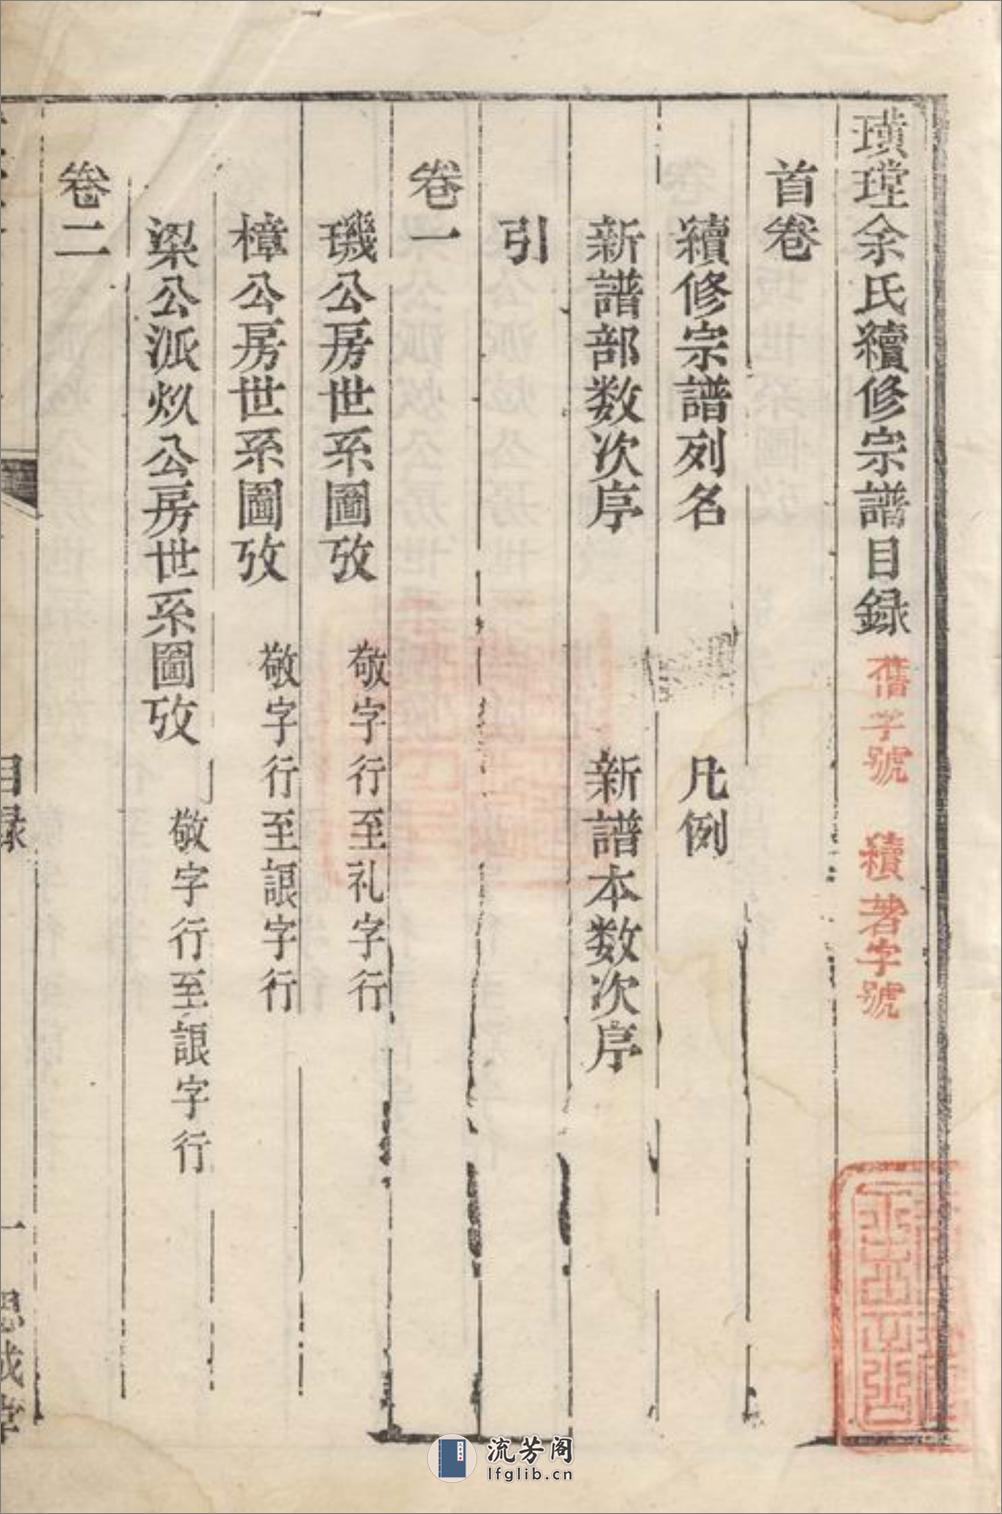 璜瑆余氏續修宗譜目録 舊字號 續著字號
首卷
續修宗譜列名 凡例
新譜部数次序 新譜本数次序
引
卷一
璣公房世系圖攷 敬字行至礼字行
樟公房世系圖攷 敬字行至詪字行
梁公派炏公房世系圖攷 敬字行至詪字行
卷二
目録 一 思成堂
流芳阁
lfglib.cn